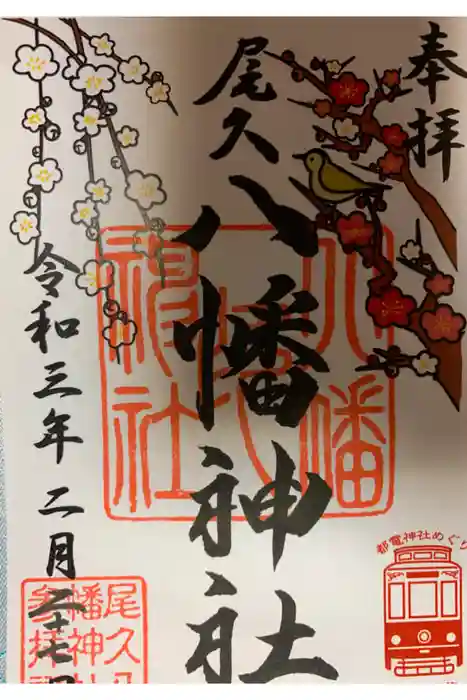 奉拝
尾久八幡神社
令和三年二月二十七日
八幡神社
都電神社めぐり
尾久八
幡神社
参拝